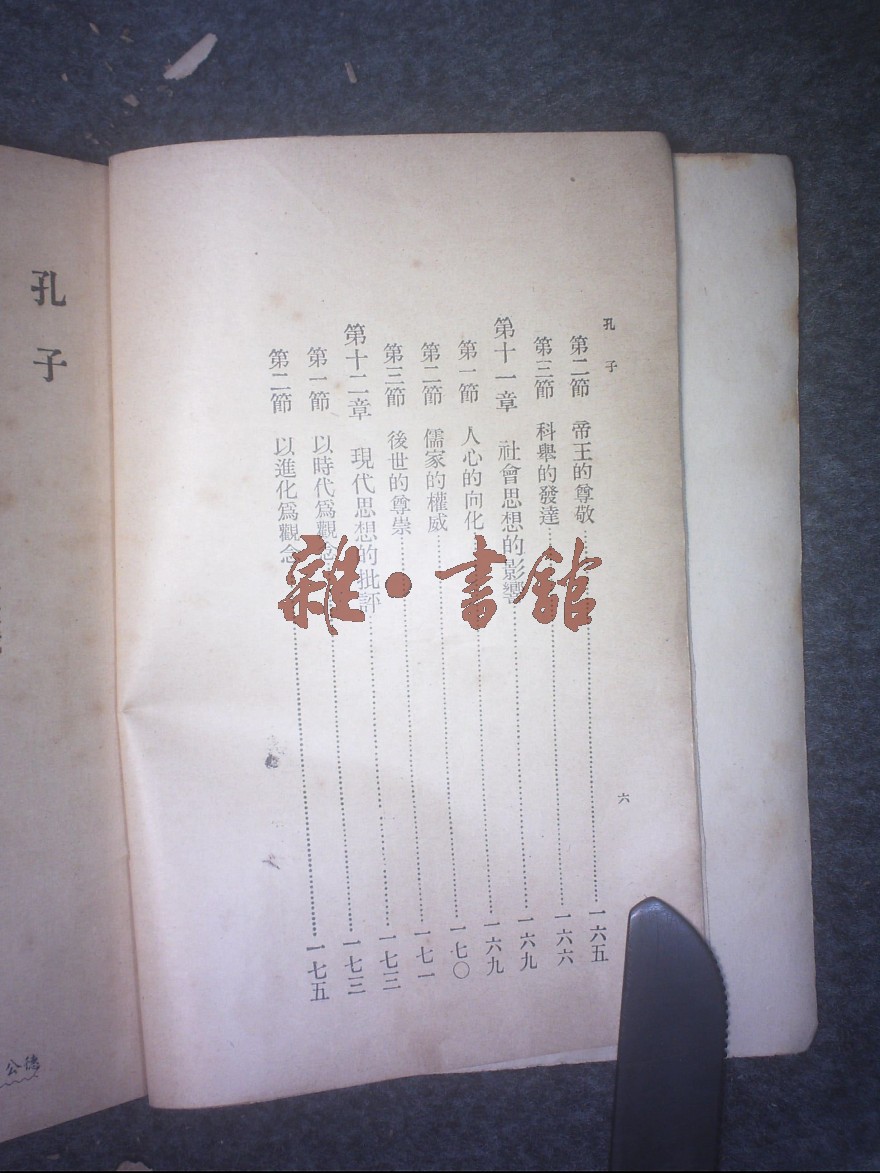 孔子 六
第二節 帝王的尊敬……一六五
第三節 科舉的發達……一六六
第十一章 社會思想的影響……一六九
第一節 人心的向化……一六九
第二節 儒家的權威……一七〇
第三節 後世的尊崇……一七一
第十二章 現代思想的批評……一七三
第一節 以時代爲觀念……一七三
第二節 以進化爲觀念……一七五
孔子
公德
雜·書館